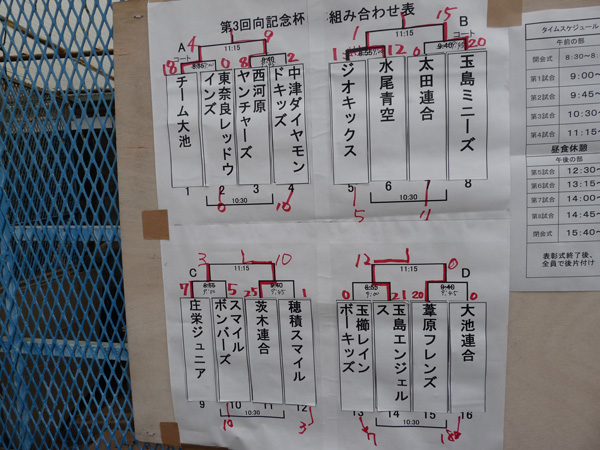 第3回向記念杯 組み合わせ表
A
コート
11:15
4
9
18
0
8
2
8:55
8:40
チーム大池
東奈良レッドウインズ
西河原ヤンチャーズ
中津ダイヤモンドキッズ
1
2
3
4
10:30
0
10
B
コート
11:15
1
15
1
12
0
20
8:40
ジオキックス
水尾青空
太田連合
玉島ミニーズ
5
6
7
8
10:30
5
11
タイムスケジュール
午前の部
開会式 8:30~8:
第1試合 9:00~
第2試合 9:45~
第3試合 10:30~
第4試合 11:15~
昼食休憩
午後の部
第5試合 12:30~
第6試合 13:15~
第7試合 14:00~
第8試合 14:45~
閉会式 15:40~
表彰式終了後、
全員で後片付け
C
11:15
3
10
7
5
25
1
8:55
8:40
9:00
9:45
庄栄ジュニア
スマイルボンバーズ
茨木連合
穂積スマイル
9
10
11
12
10:30
10
3
D
11:15
12
0
0
21
20
0
8:55
8:40
9:00
9:45
玉櫛レインボーキッズ
玉島エンジェルス
葦原フレンズ
大池連合
13
14
15
16
10:30
7
18